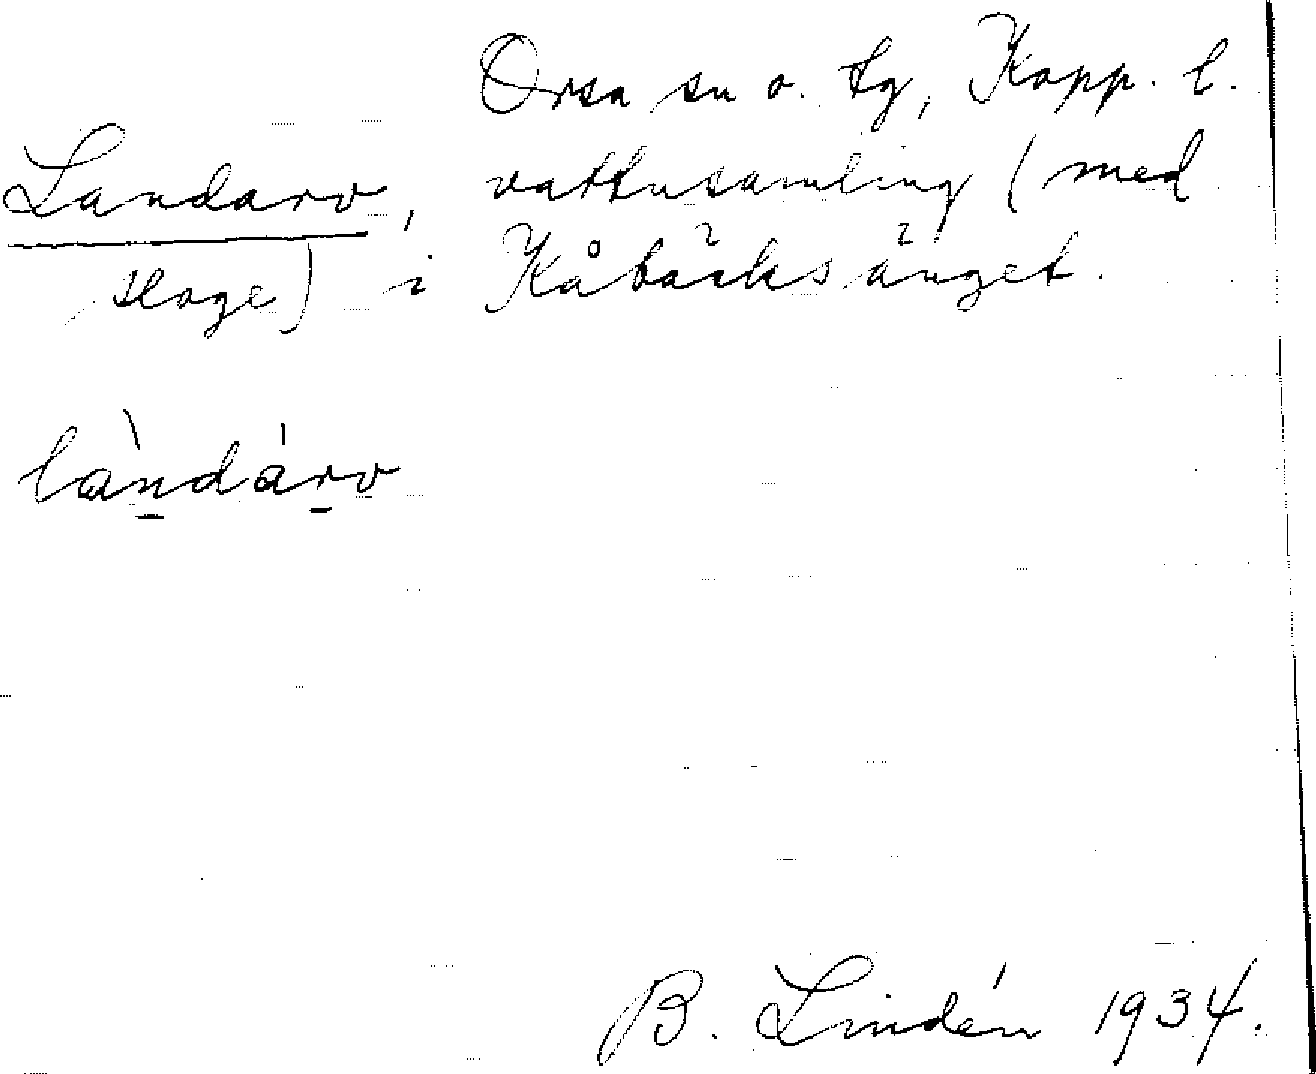 Orsa sn o. tg, Kopp. l.
Landarv, vattusamling (med
sloge) i Kåbäcksänget.
làndárv
B. Lindén 1934.